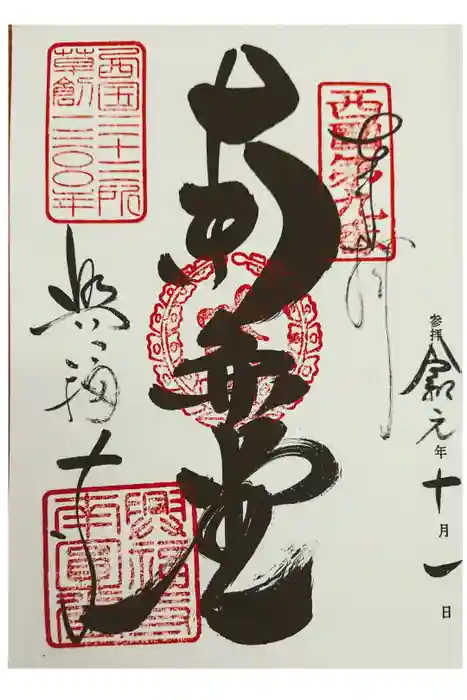 参拝 令和元年十月一日
奉拝
西国第九番
南円堂
西国三十三所
草創一三〇〇年
興福寺
興福寺
南圓堂